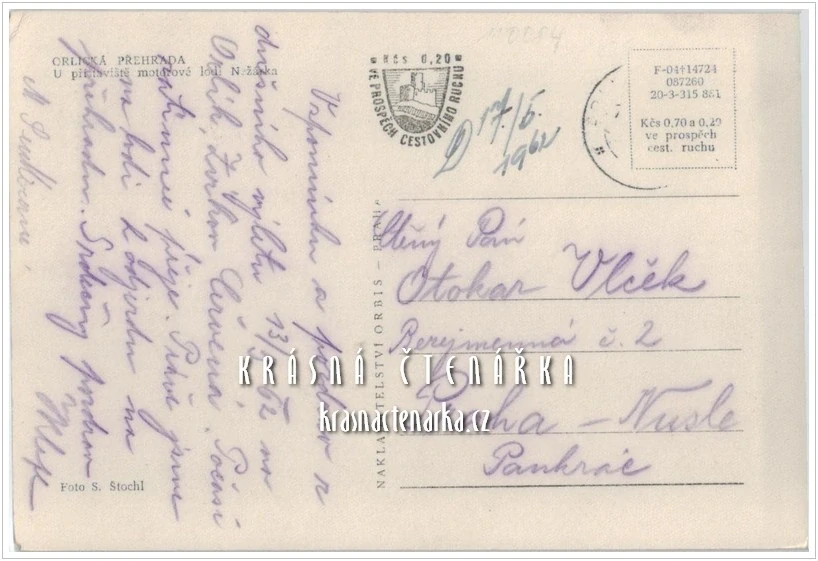 ORLICKÁ PŘEHRADA
U přístaviště motorové lodi Nežárka
Vzpomínku a pozdrav z
dnešního výletu 13/5 62 na
Orlík, Zvíkov, Červená. Počasí
přeje. Právě jsme
na lodi k odjezdu na
přehradu. Srdečný pozdrav
Foto S. Štochl
NAKLADATELSTVÍ ORBIS – PRAHA
Kčs 0,20
VE PROSPĚCH CESTOVNÍHO RUCHU
D 17/5
1962
F-04†14724
087260
20-3-315 881
Kčs 0,70 a 0,20
ve prospěch
cest. ruchu
Pán
Otokar Vlček
Bezejmenná č. 2
Praha – Nusle
Pankrác
KRÁSNÁ ČTENÁŘKA
krasnactenarka.cz